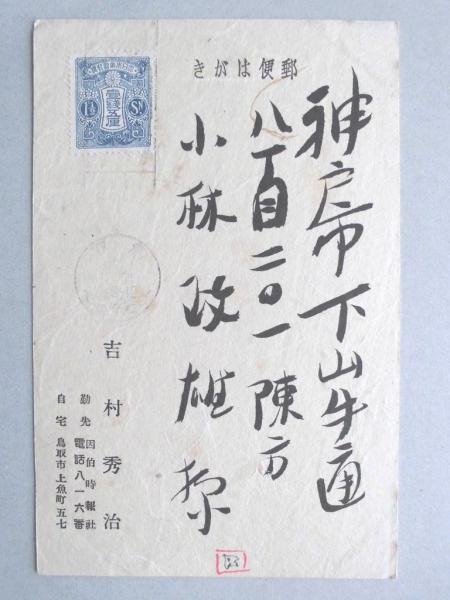 郵便はがき
神戸市下山手通
八丁目二〇一 陳方
小林政雄様
壹錢五厘
1½ Sn
吉村秀治
勤先 因伯時報社
電話八一六番
自宅 鳥取市上魚町五七